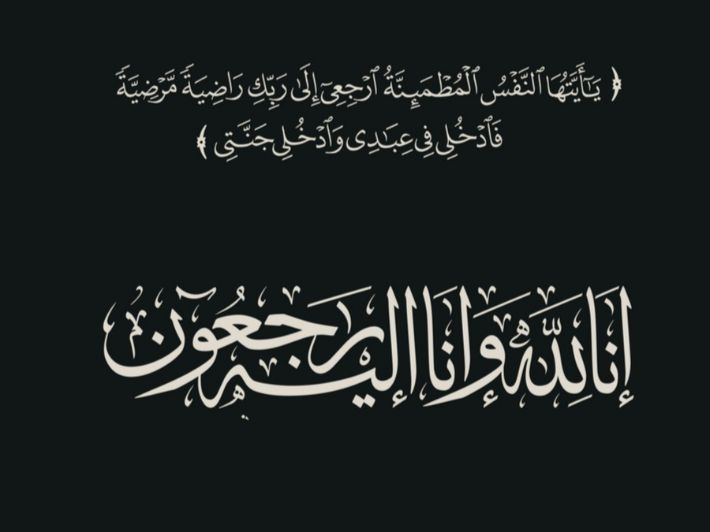 ﴿ يَـٰٓأَيَّتُهَا ٱلنَّفْسُ ٱلْمُطْمَئِنَّةُ ٱرْجِعِىٓ إِلَىٰ رَبِّكِ رَاضِيَةً مَّرْضِيَّةً
فَٱدْخُلِى فِى عِبَـٰدِى وَٱدْخُلِى جَنَّتِى ﴾
إنا لله وإنا إليه راجعون